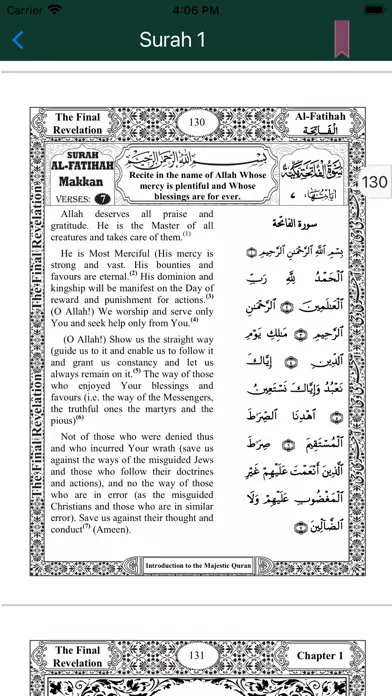 Carrier
4:06 PM
Surah 1
The Final
Revelation
130
Al-Fatihah
الْفَاتِحَة
SURAH
AL-FATIHAH
Makkan
VERSES: 7
بِسْمِ اللهِ الرَّحْمٰنِ الرَّحِيْمِ
Recite in the name of Allah Whose
mercy is plentiful and Whose
blessings are for ever.
130
The Final Revelation
The Final Revelation
The Final Revelation
Allah deserves all praise and
gratitude. He is the Master of all
creatures and takes care of them.(1)
He is Most Merciful (His mercy is
strong and vast. His bounties and
favours are eternal.(2) His dominion and
kingship will be manifest on the Day of
reward and punishment for actions.(3)
(O Allah!) We worship and serve only
You and seek help only from You.(4)
(O Allah!) Show us the straight way
(guide us to it and enable us to follow it
and grant us constancy and let us
always remain on it.(5) The way of those
who enjoyed Your blessings and
favours (i.e. the way of the Messengers,
the truthful ones the martyrs and the
pious)(6)
Not of those who were denied thus
and who incurred Your wrath (save us
against the ways of the misguided Jews
and those who follow their doctrines
and actions), and no the way of those
who are in error (as the misguided
Christians and those who are in similar
error). Save us against their thought and
conduct(7) (Ameen).
سورة الفاتحة
بِسْمِ اللَّهِ الرَّحْمَٰنِ الرَّحِيمِ
الْحَمْدُ لِلَّهِ رَبِّ
الْعَالَمِينَ الرَّحْمَٰنِ
الرَّحِيمِ مَالِكِ يَوْمِ
الدِّينِ إِيَّاكَ
نَعْبُدُ وَإِيَّاكَ نَسْتَعِينُ
اهْدِنَا الصِّرَاطَ
الْمُسْتَقِيمَ صِرَاطَ
الَّذِينَ أَنْعَمْتَ عَلَيْهِمْ غَيْرِ
الْمَغْضُوبِ عَلَيْهِمْ وَلَا
الضَّالِّينَ
Introduction to the Majestic Quran
The Final
Revelation
131
Chapter 1